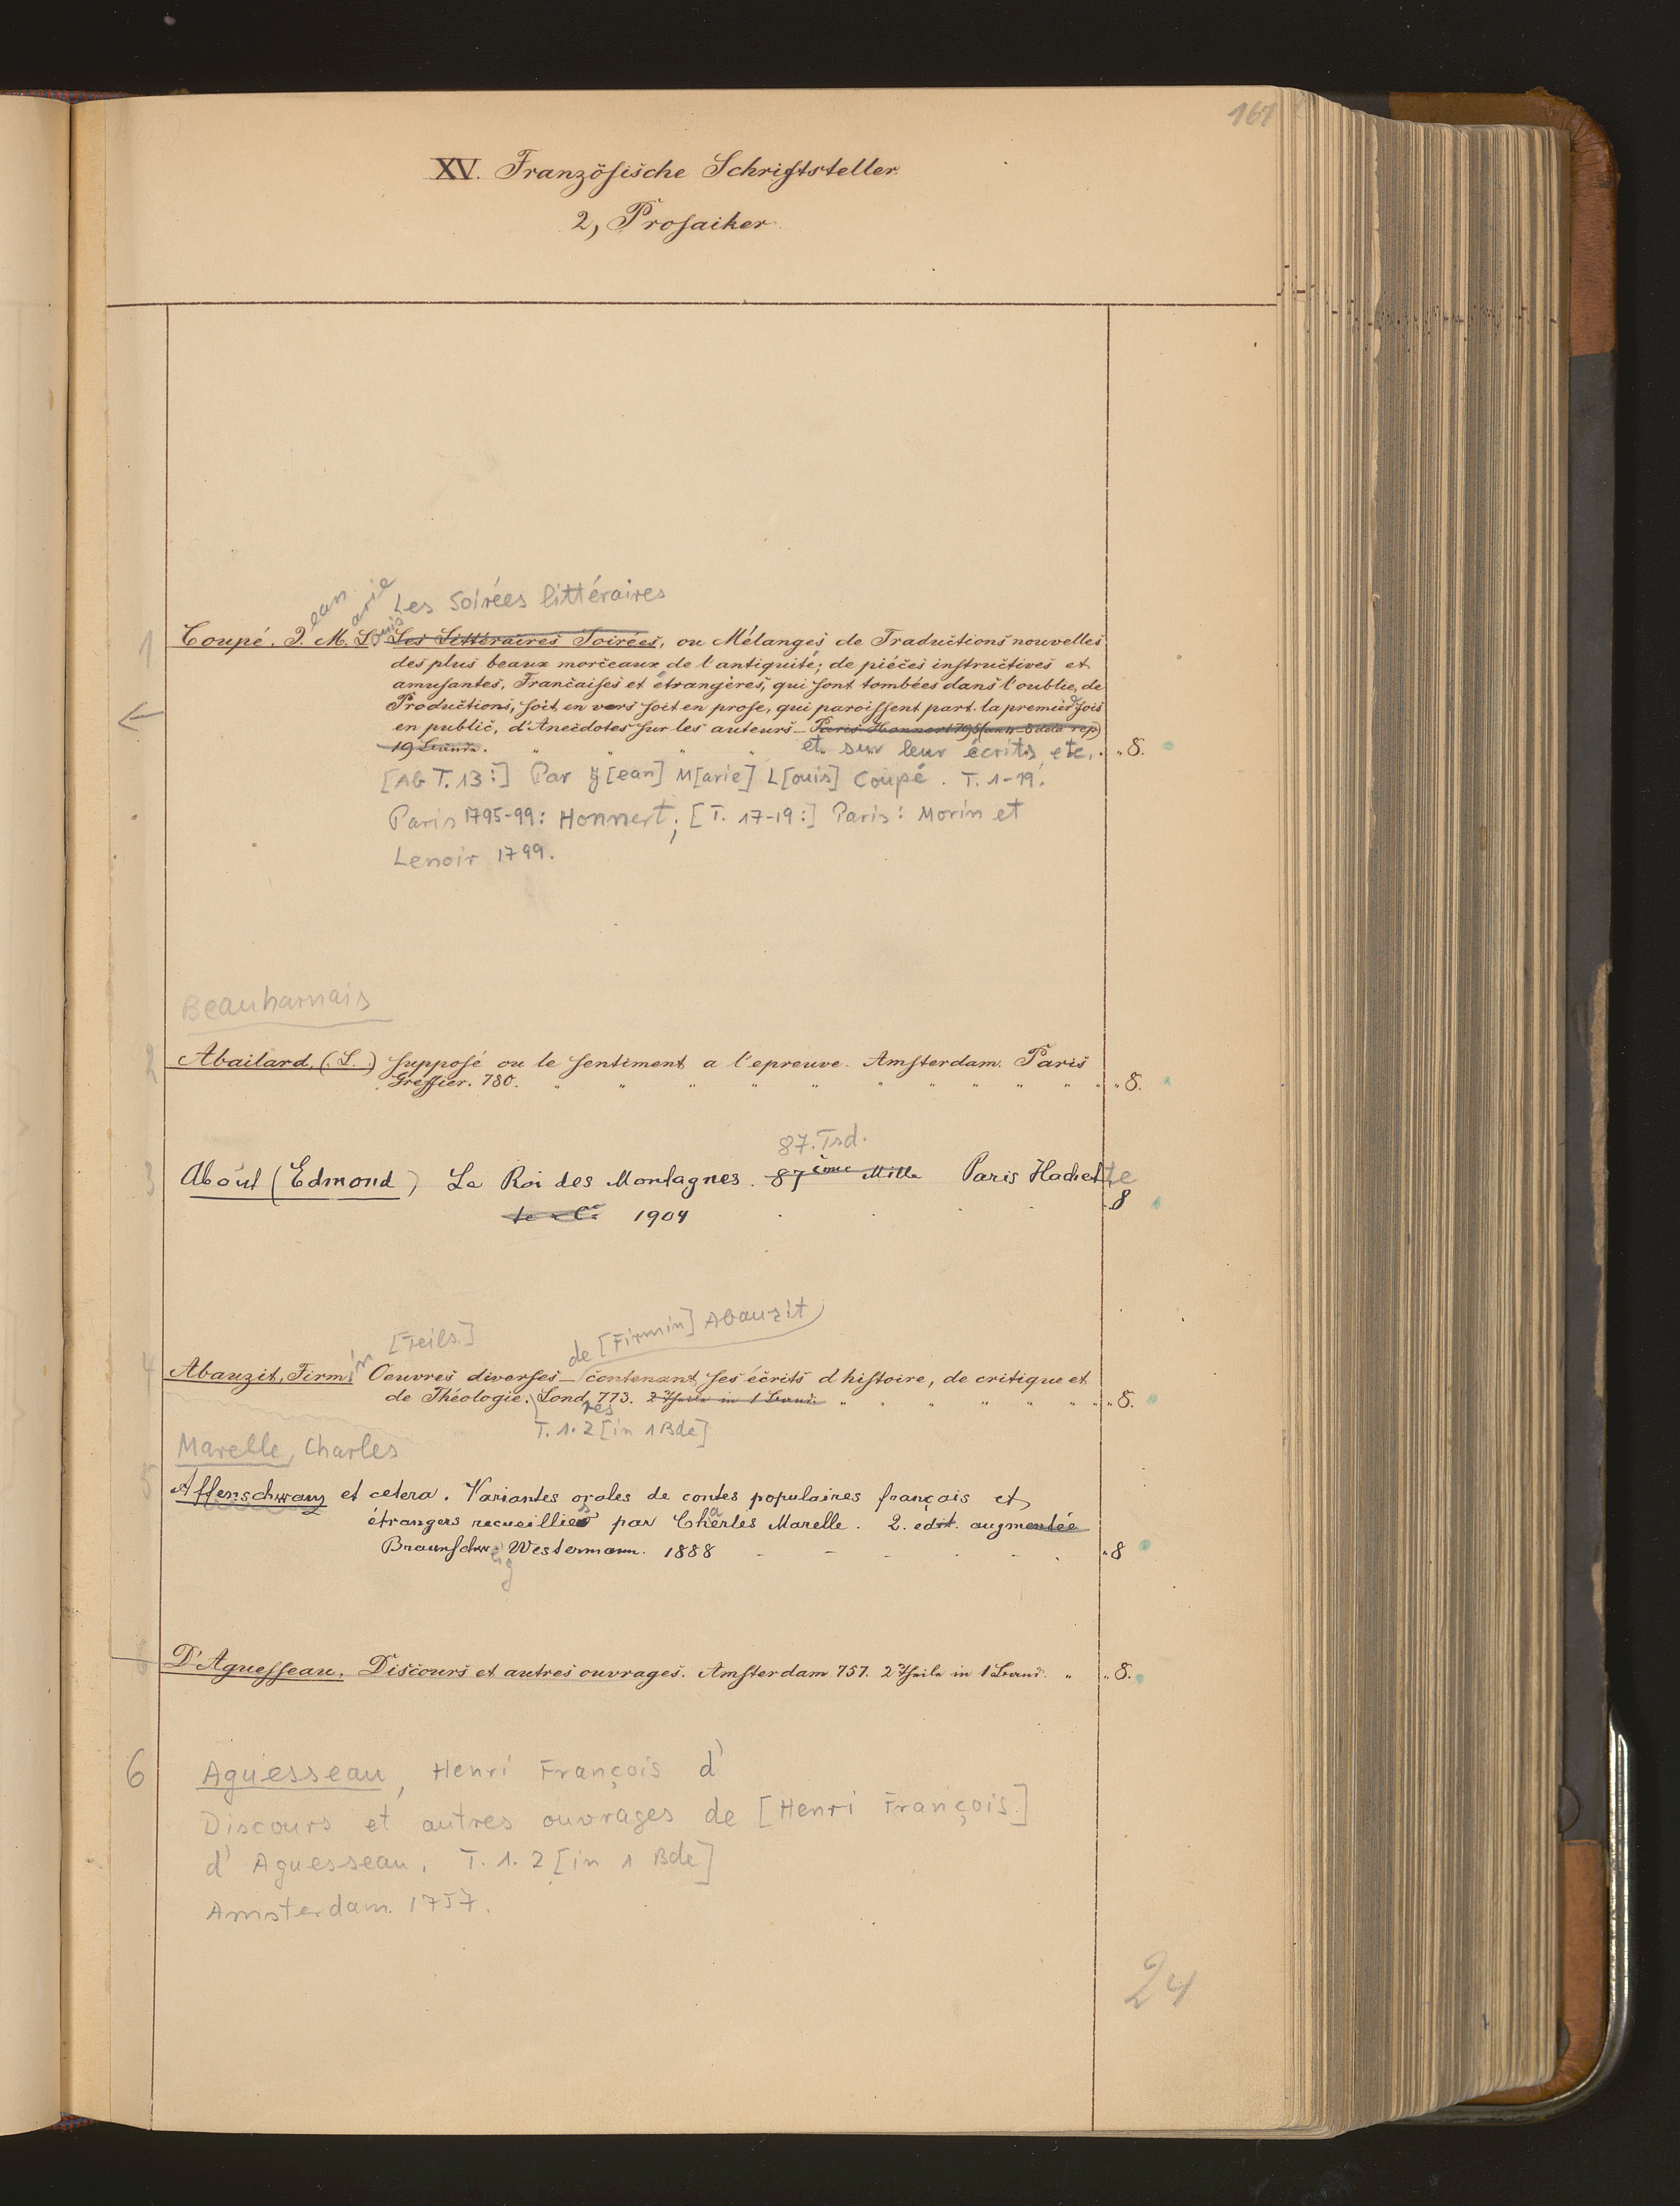 167
XV. Französische Schriftsteller
2, Prosaiker
Les Soirées littéraires
1 Coupé, J. ean M. arie L. ouis Les Littéraires Soirées, ou Mélanges de Traductions nouvelles
des plus beaux morceaux de l'antiquité; de piéces instructives et
amusantes, Francaises et étrangères, qui sont tombées dans l'oublie, de
Productions, soit en vers soit en prose, qui paroissent part. la premier fois
en public, d'Anecdotes sur les auteurs – Paris Honnert 795
19 Bände. " " " " et sur leur écrits, etc. " 8.
[Ab T. 13:] Par J[ean] M[arie] L[ouis] Coupé. T. 1-19.
Paris 1795-99: Honnert; [T. 17-19:] Paris: Morin et
Lenoir 1799.
Beauharnais
2 Abailard, (L.) supposé ou le sentiment a l'epreuve. Amsterdam. Paris
Greffier. 780. " " " " " " " " " " " 8.
87. Tsd.
3 About (Edmond) Le Roi des Montagnes. 87ème Mille Paris Hachette
te & Cie 1904 . . . . 8
[Teils.] de [Firmin] Abauzit
4 Abauzit, Firmin Oeuvres diverses – contenant ses écrits d histoire, de critique et
de Théologie. Londres 773. 2 Theile in 1 Bande " " " " " " " 8.
T. 1. 2 [in 1 Bde]
Marelle, Charles
5 Affenschwanz et cetera. Variantes orales de contes populaires français et
étrangers recueillies par Charles Marelle. 2. edit. augmentée
Braunschweig Westermann. 1888 - - - - - - " 8
6 D'Aguesseau. Discours et autres ouvrages. Amsterdam 757. 2 Theile in 1 Band. " " 8.
6 Aguesseau, Henri François d'
Discours et autres ouvrages de [Henri François]
d'Aguesseau. T. 1. 2 [in 1 Bde]
Amsterdam 1757.
24